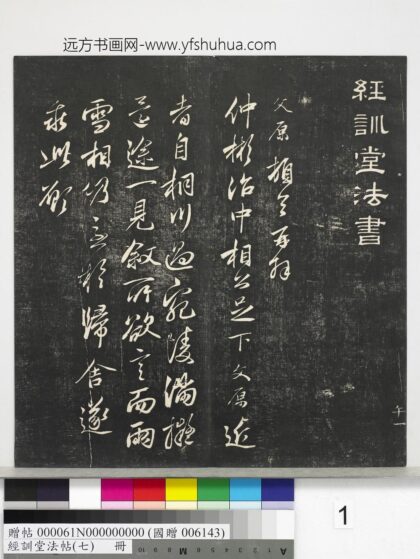 远方书画网-www.yfshuhua.com
經訓堂法書
文原頓首再拜
仲彬治中相公足下文原近
者自桐川過宛陵滿擬
途一見敘所欲言而雨
雪相仍歸舍遂
此
午一
贈帖 000061N000000000 (國贈 006143)
經訓堂法帖(七) 冊
1